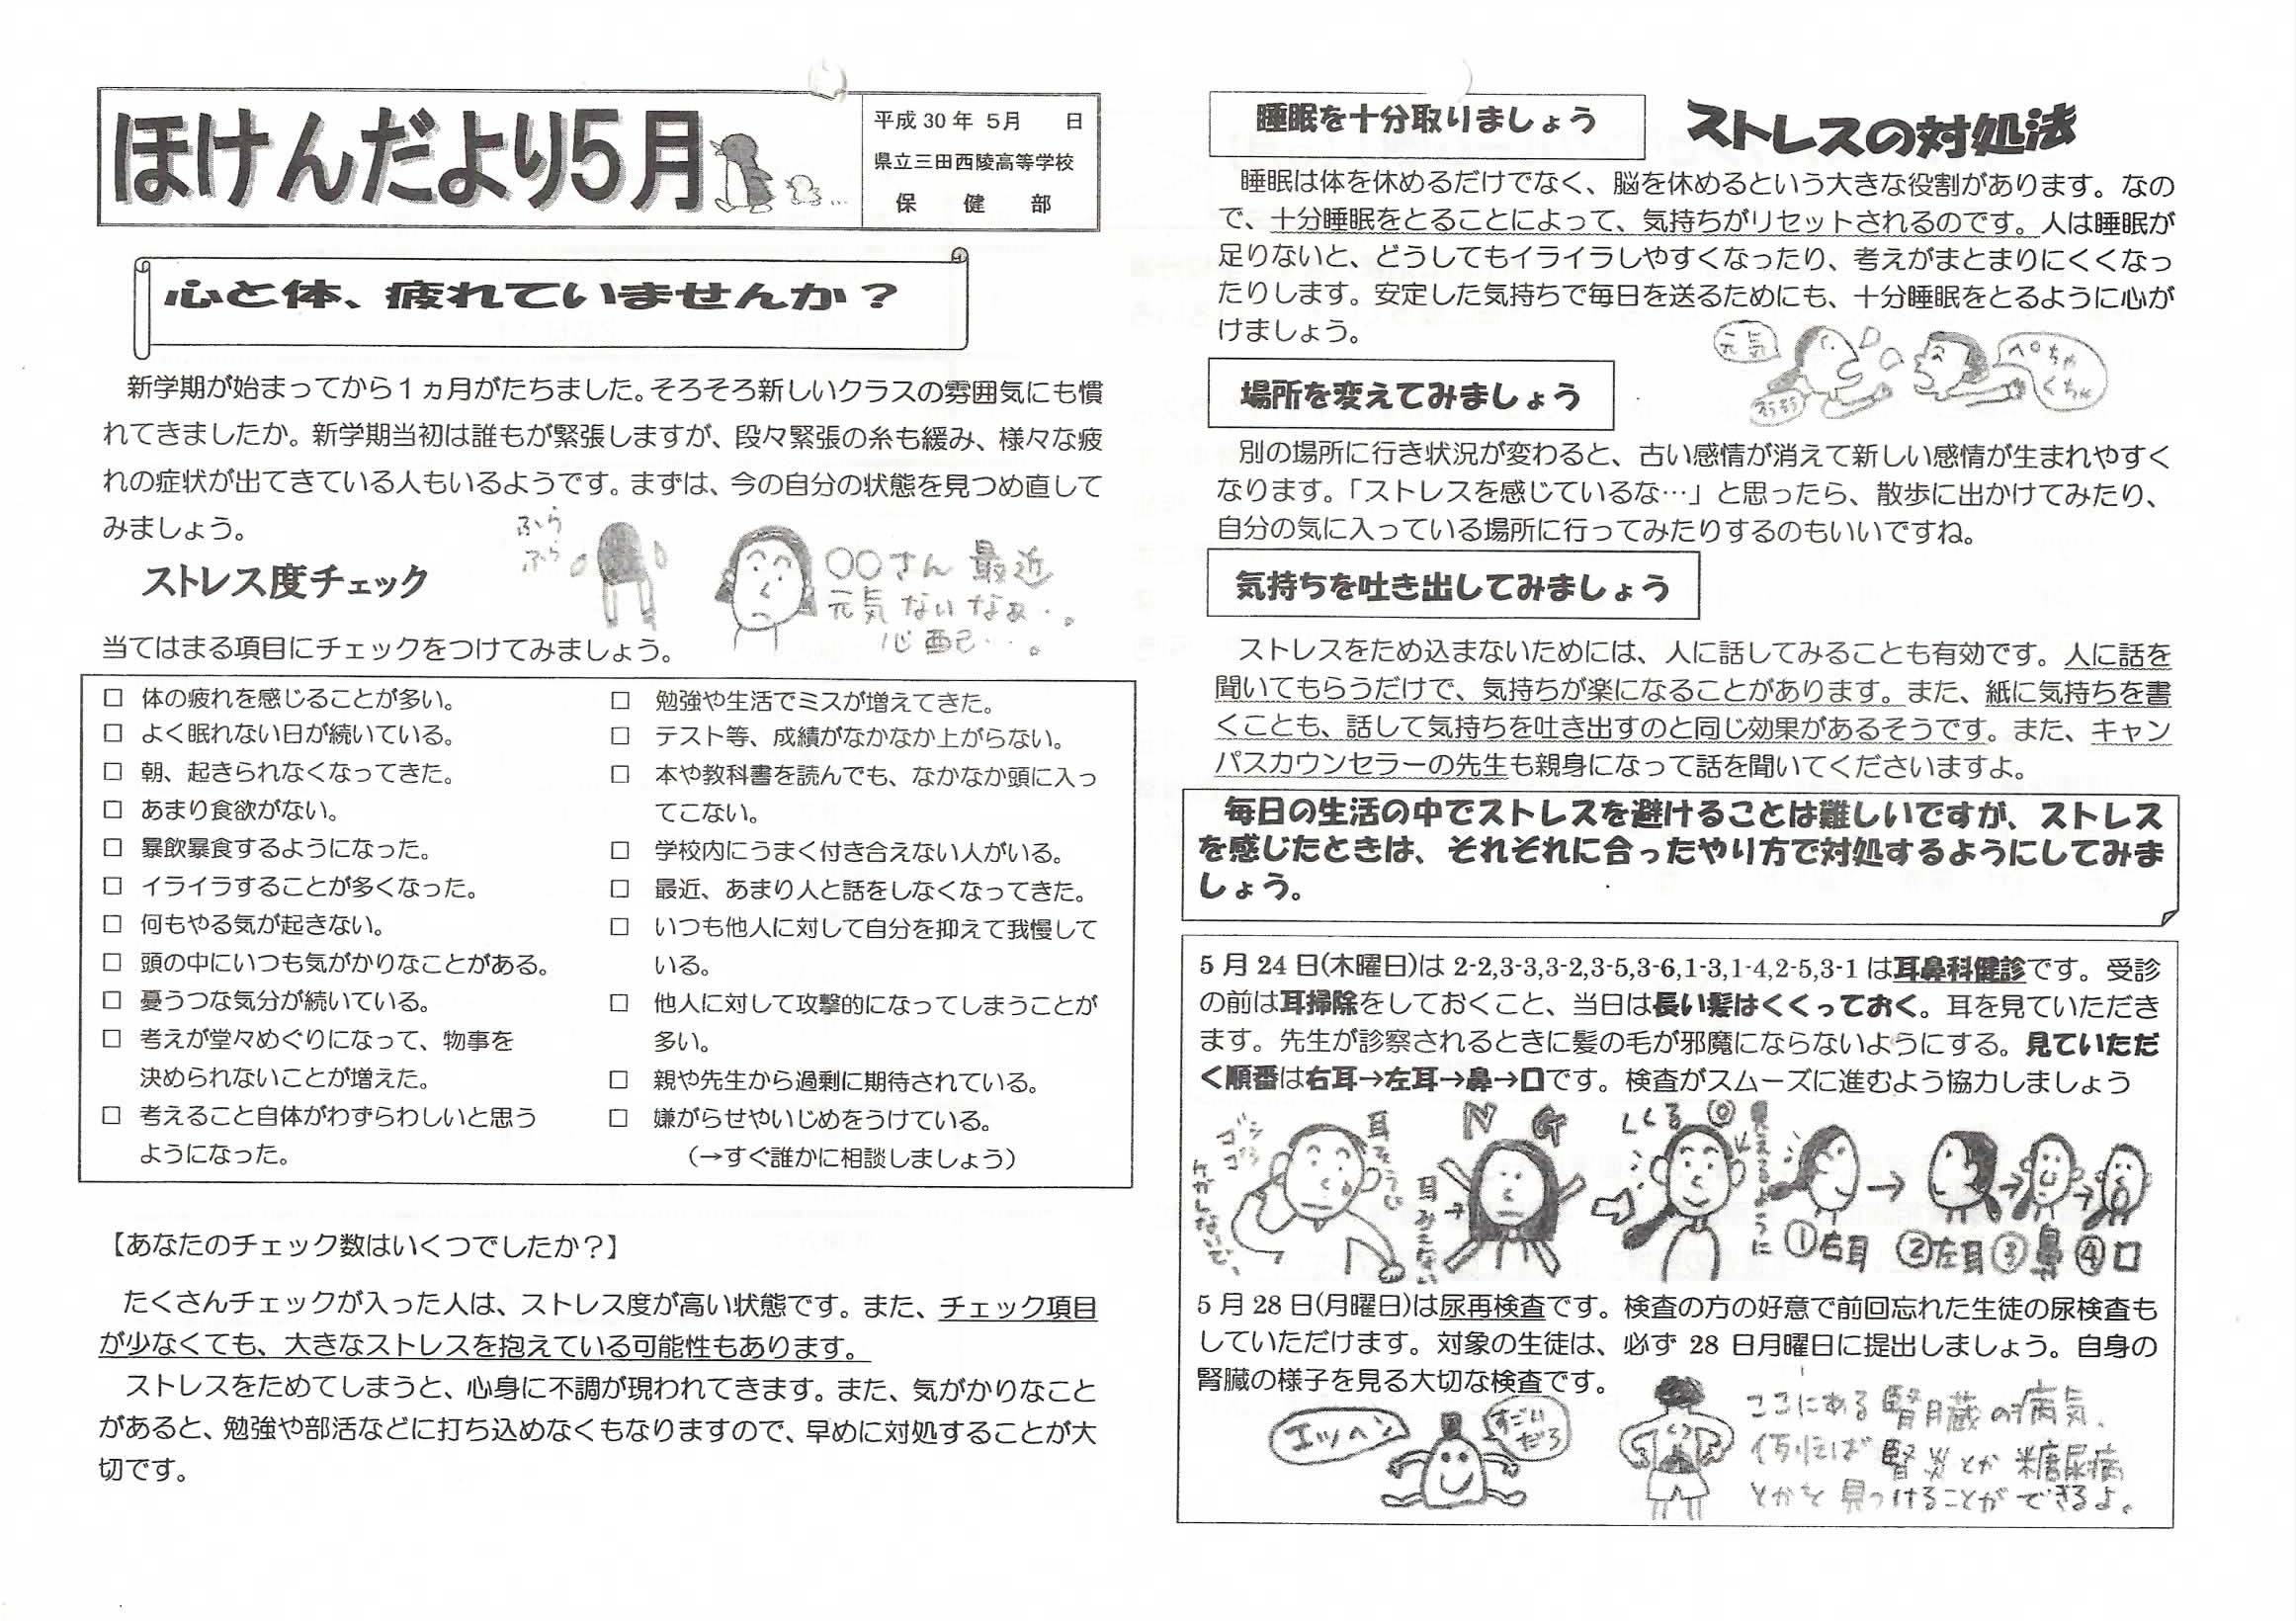 ほけんだより5月
平成30年 5月 日
県立三田西陵高等学校
保 健 部
心と体、疲れていませんか？
新学期が始まってから１ヵ月がたちました。そろそろ新しいクラスの雰囲気にも慣
れてきましたか。新学期当初は誰もが緊張しますが、段々緊張の糸も緩み、様々な疲
れの症状が出てきている人もいるようです。まずは、今の自分の状態を見つめ直して
みましょう。
ふら
ふら
〇〇さん 最近
元気 ないなぁ・。
心配…。
ストレス度チェック
当てはまる項目にチェックをつけてみましょう。
□ 体の疲れを感じることが多い。
□ よく眠れない日が続いている。
□ 朝、起きられなくなってきた。
□ あまり食欲がない。
□ 暴飲暴食するようになった。
□ イライラすることが多くなった。
□ 何もやる気が起きない。
□ 頭の中にいつも気がかりなことがある。
□ 憂うつな気分が続いている。
□ 考えが堂々めぐりになって、物事を
決められないことが増えた。
□ 考えること自体がわずらわしいと思う
ようになった。
□ 勉強や生活でミスが増えてきた。
□ テスト等、成績がなかなか上がらない。
□ 本や教科書を読んでも、なかなか頭に入っ
てこない。
□ 学校内にうまく付き合えない人がいる。
□ 最近、あまり人と話をしなくなってきた。
□ いつも他人に対して自分を抑えて我慢して
いる。
□ 他人に対して攻撃的になってしまうことが
多い。
□ 親や先生から過剰に期待されている。
□ 嫌がらせやいじめをうけている。
（→すぐ誰かに相談しましょう）
【あなたのチェック数はいくつでしたか？】
たくさんチェックが入った人は、ストレス度が高い状態です。また、チェック項目
が少なくても、大きなストレスを抱えている可能性もあります。
ストレスをためてしまうと、心身に不調が現われてきます。また、気がかりなこと
があると、勉強や部活などに打ち込めなくもなりますので、早めに対処することが大
切です。
睡眠を十分取りましょう
ストレスの対処法
睡眠は体を休めるだけでなく、脳を休めるという大きな役割があります。なの
で、十分睡眠をとることによって、気持ちがリセットされるのです。人は睡眠が
足りないと、どうしてもイライラしやすくなったり、考えがまとまりにくくなっ
たりします。安定した気持ちで毎日を送るためにも、十分睡眠をとるように心が
けましょう。
元気
ぺちゃ
くちゃ
場所を変えてみましょう
別の場所に行き状況が変わると、古い感情が消えて新しい感情が生まれやすく
なります。「ストレスを感じているな…」と思ったら、散歩に出かけてみたり、
自分の気に入っている場所に行ってみたりするのもいいですね。
気持ちを吐き出してみましょう
ストレスをため込まないためには、人に話してみることも有効です。人に話を
聞いてもらうだけで、気持ちが楽になることがあります。また、紙に気持ちを書
くことも、話して気持ちを吐き出すのと同じ効果があるそうです。また、キャン
パスカウンセラーの先生も親身になって話を聞いてくださいますよ。
毎日の生活の中でストレスを避けることは難しいですが、ストレス
を感じたときは、それぞれに合ったやり方で対処するようにしてみま
しょう。
5月24日(木曜日)は 2-2,3-3,3-2,3-5,3-6,1-3,1-4,2-5,3-1 は耳鼻科健診です。受診
の前は耳掃除をしておくこと、当日は長い髪はくくっておく。耳を見ていただき
ます。先生が診察されるときに髪の毛が邪魔にならないようにする。見ていただ
く順番は右耳→左耳→鼻→口です。検査がスムーズに進むよう協力しましょう
ゴシ
ゴシ
けがしないで、
耳そうじ
NG
耳みえない
→
くくる◎
見えるように
①右耳 → ②左耳 → ③鼻 → ④口
5月28日(月曜日)は尿再検査です。検査の方の好意で前回忘れた生徒の尿検査も
していただけます。対象の生徒は、必ず 28 日月曜日に提出しましょう。自身の
腎臓の様子を見る大切な検査です。
エッヘン
すごい
だろ
ここにある腎臓の病気、
例えば腎炎とか糖尿病
とかを見つけることができるよ。